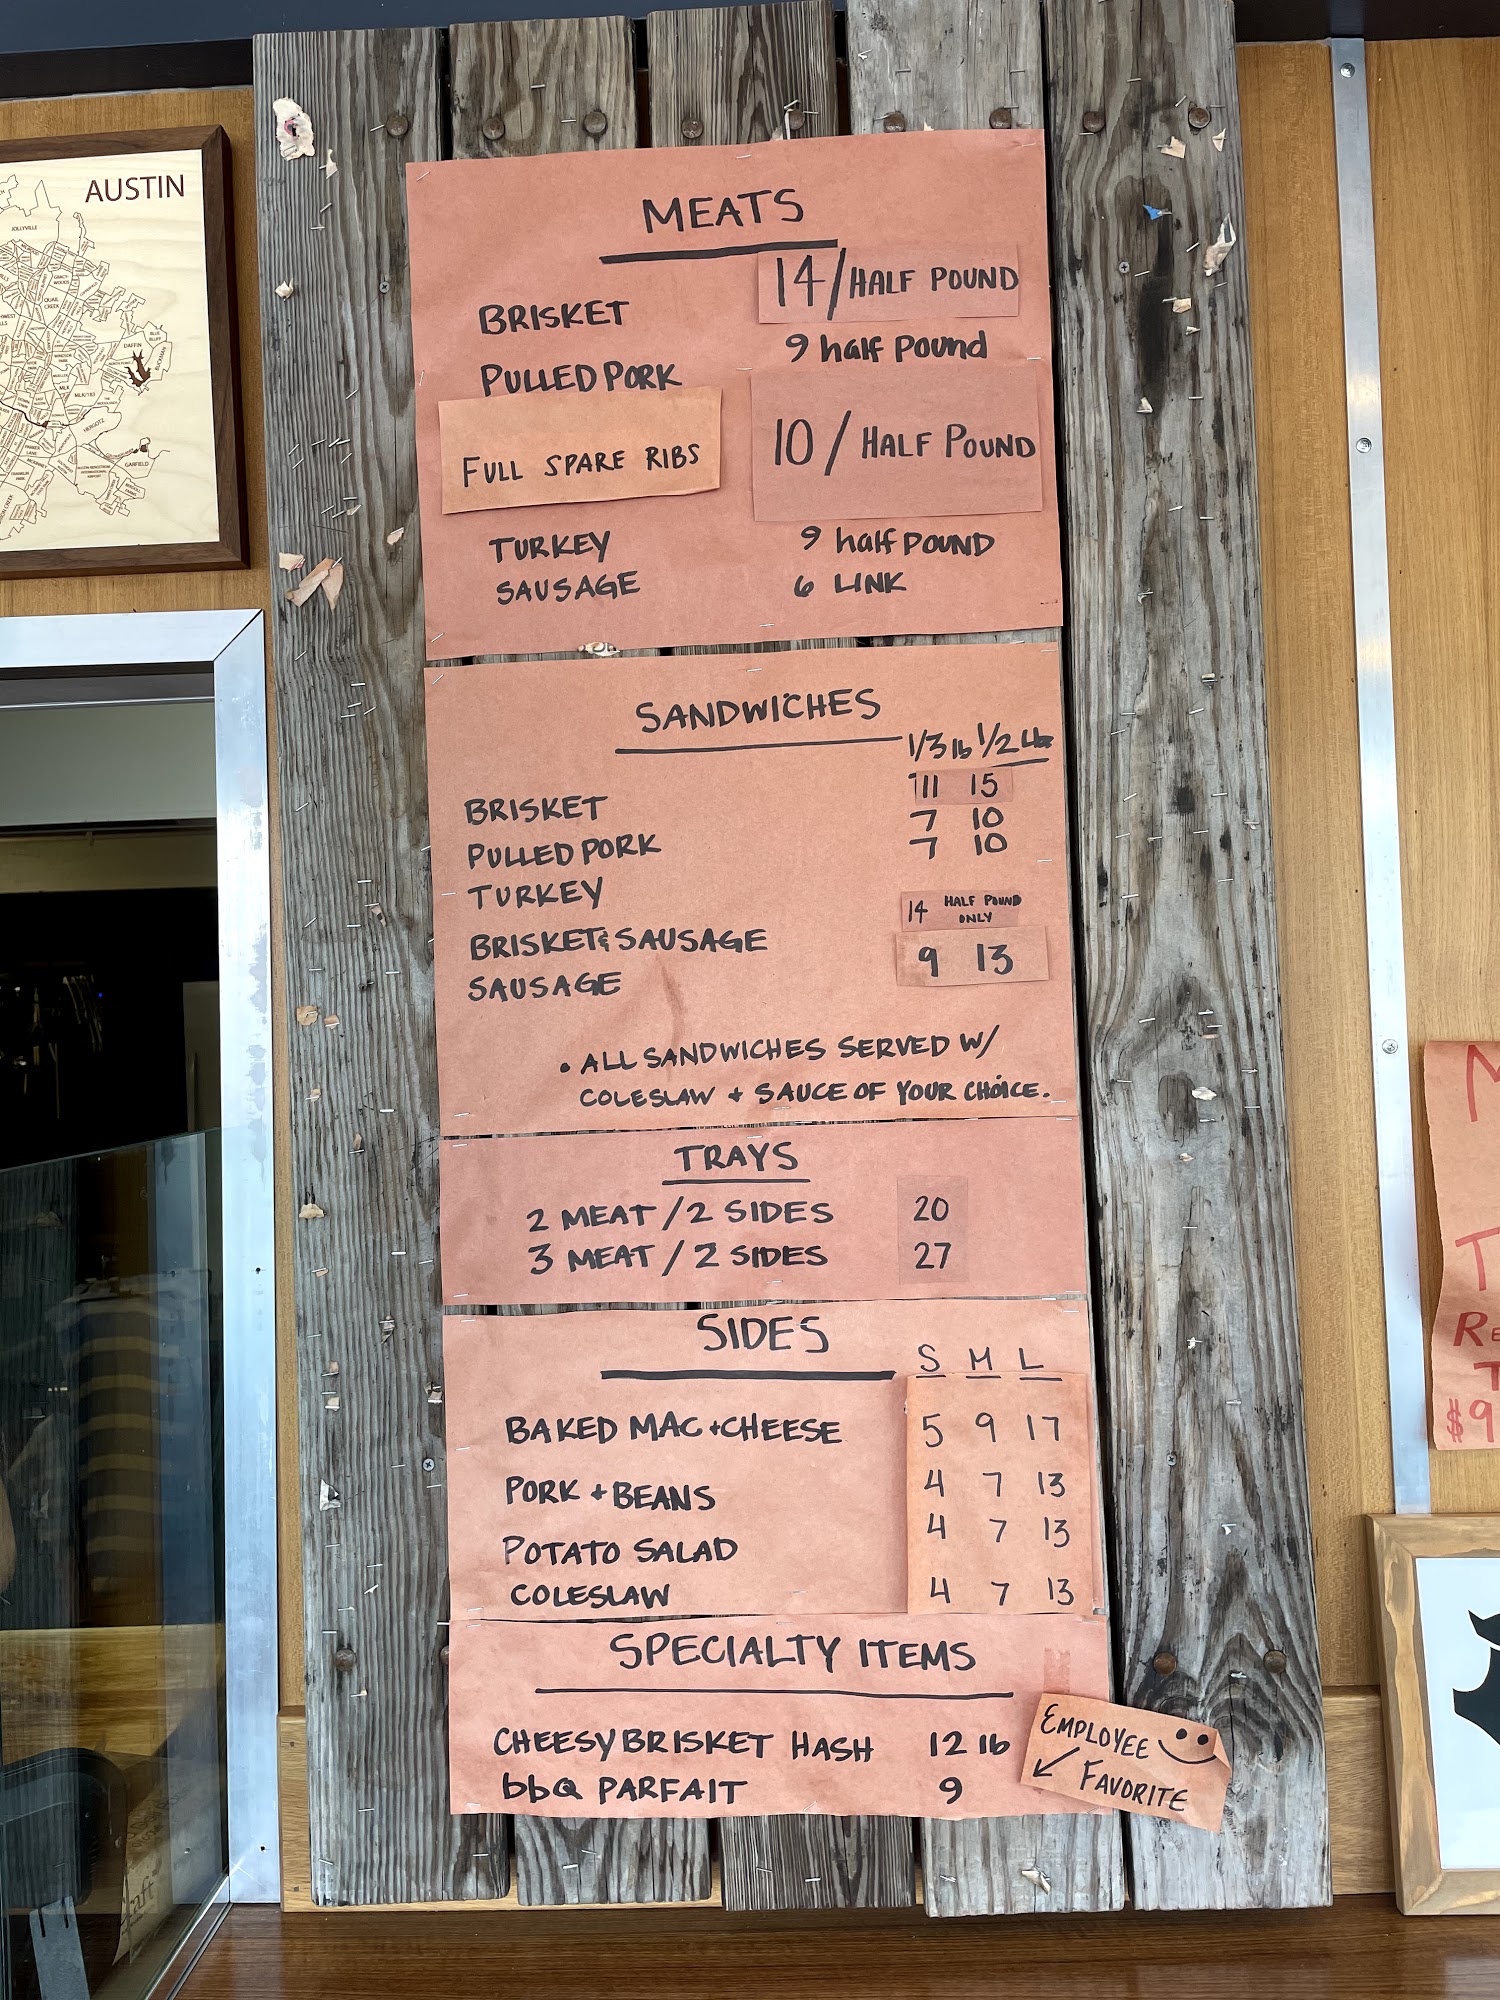 AUSTIN
JOLLYVILLE
MEATS
BRISKET 14/HALF POUND
PULLED PORK 9 half Pound
FULL SPARE RIBS 10 / HALF POUND
TURKEY 9 half POUND
SAUSAGE 6 LINK
SANDWICHES
1/3 lb 1/2 Lb
BRISKET 11 15
PULLED PORK 7 10
TURKEY 7 10
BRISKET & SAUSAGE 14 HALF POUND ONLY
SAUSAGE 9 13
• ALL SANDWICHES SERVED W/
COLESLAW + SAUCE OF YOUR CHOICE.
TRAYS
2 MEAT / 2 SIDES 20
3 MEAT / 2 SIDES 27
SIDES
S M L
BAKED MAC + CHEESE 5 9 17
PORK + BEANS 4 7 13
POTATO SALAD 4 7 13
COLESLAW 4 7 13
SPECIALTY ITEMS
CHEESY BRISKET HASH 12 lb
bbQ PARFAIT 9
EMPLOYEE
FAVORITE
$9